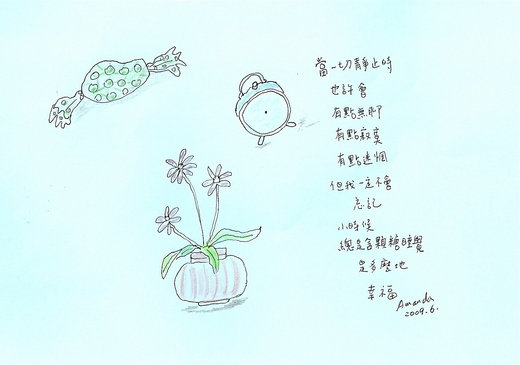 當一切靜止時
也許會
有點無聊
有點寂寞
有點迷惘
但我一定不會
忘記
小時候
總是含顆糖睡覺
是多麼地
幸福
Amanda
2009.6.